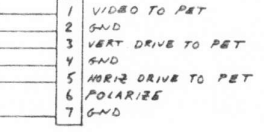 1 VIDEO TO PET
2 GND
3 VERT DRIVE TO PET
4 GND
5 HORIZ DRIVE TO PET
6 POLARIZE
7 GND